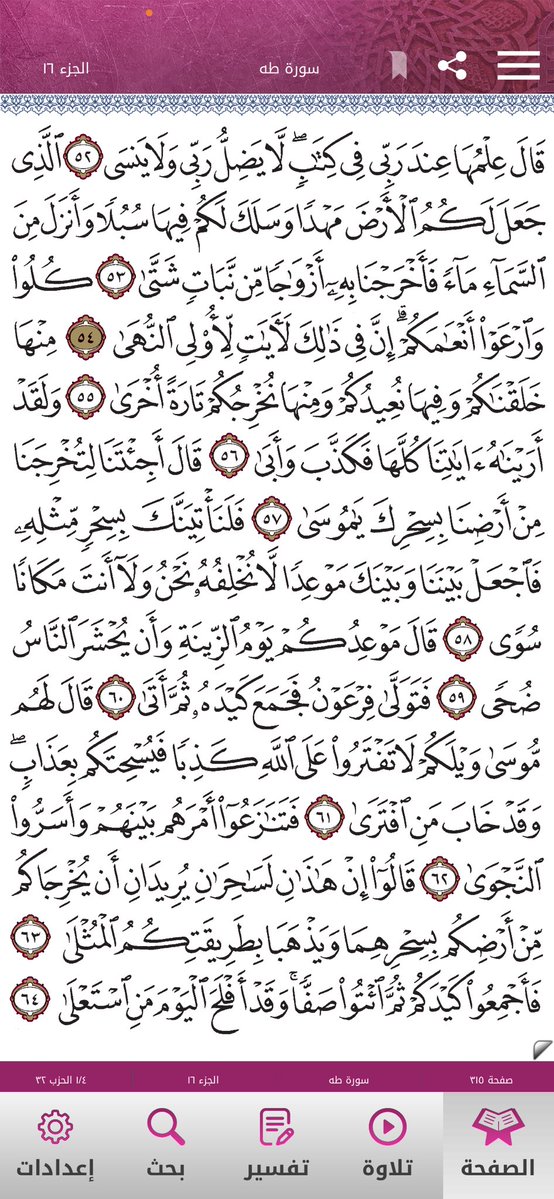 الجزء ١٦
سورة طه
قَالَ عِلْمُهَا عِندَ رَبِّى فِى كِتَٰبٍۖ لَّا يَضِلُّ رَبِّى وَلَا يَنسَى ٥٢ ٱلَّذِى
جَعَلَ لَكُمُ ٱلْأَرْضَ مَهْدًا وَسَلَكَ لَكُمْ فِيهَا سُبُلًا وَأَنزَلَ مِنَ
ٱلسَّمَآءِ مَآءً فَأَخْرَجْنَا بِهِۦٓ أَزْوَٰجًا مِّن نَّبَاتٍ شَتَّىٰ ٥٣ كُلُوا۟
وَٱرْعَوْا۟ أَنْعَٰمَكُمْۗ إِنَّ فِى ذَٰلِكَ لَءَايَٰتٍ لِّأُو۟لِى ٱلنُّهَىٰ ٥٤ مِنْهَا
خَلَقْنَٰكُمْ وَفِيهَا نُعِيدُكُمْ وَمِنْهَا نُخْرِجُكُمْ تَارَةً أُخْرَىٰ ٥٥ وَلَقَدْ
أَرَيْنَٰهُ ءَايَٰتِنَا كُلَّهَا فَكَذَّبَ وَأَبَىٰ ٥٦ قَالَ أَجِئْتَنَا لِتُخْرِجَنَا
مِنْ أَرْضِنَا بِسِحْرِكَ يَٰمُوسَىٰ ٥٧ فَلَنَأْتِيَنَّكَ بِسِحْرٍ مِّثْلِهِۦ
فَٱجْعَلْ بَيْنَنَا وَبَيْنَكَ مَوْعِدًا لَّا نُخْلِفُهُۥ نَحْنُ وَلَآ أَنتَ مَكَانًا
سُوًى ٥٨ قَالَ مَوْعِدُكُمْ يَوْمُ ٱلزِّينَةِ وَأَن يُحْشَرَ ٱلنَّاسُ
ضُحًى ٥٩ فَتَوَلَّىٰ فِرْعَوْنُ فَجَمَعَ كَيْدَهُۥ ثُمَّ أَتَىٰ ٦٠ قَالَ لَهُم
مُّوسَىٰ وَيْلَكُمْ لَا تَفْتَرُوا۟ عَلَى ٱللَّهِ كَذِبًا فَيُسْحِتَكُم بِعَذَابٍۖ
وَقَدْ خَابَ مَنِ ٱفْتَرَىٰ ٦١ فَتَنَٰزَعُوٓا۟ أَمْرَهُم بَيْنَهُمْ وَأَسَرُّوا۟
ٱلنَّجْوَىٰ ٦٢ قَالُوٓا۟ إِنْ هَٰذَٰنِ لَسَٰحِرَٰنِ يُرِيدَانِ أَن يُخْرِجَاكُم
مِّنْ أَرْضِكُم بِسِحْرِهِمَا وَيَذْهَبَا بِطَرِيقَتِكُمُ ٱلْمُثْلَىٰ ٦٣
فَأَجْمِعُوا۟ كَيْدَكُمْ ثُمَّ ٱئْتُوا۟ صَفًّاۚ وَقَدْ أَفْلَحَ ٱلْيَوْمَ مَنِ ٱسْتَعْلَىٰ ٦٤
صفحة ٣١٥ سورة طه الجزء ١٦ ١/٤ الحزب ٣٢
الصفحة تلاوة تفسير بحث إعدادات